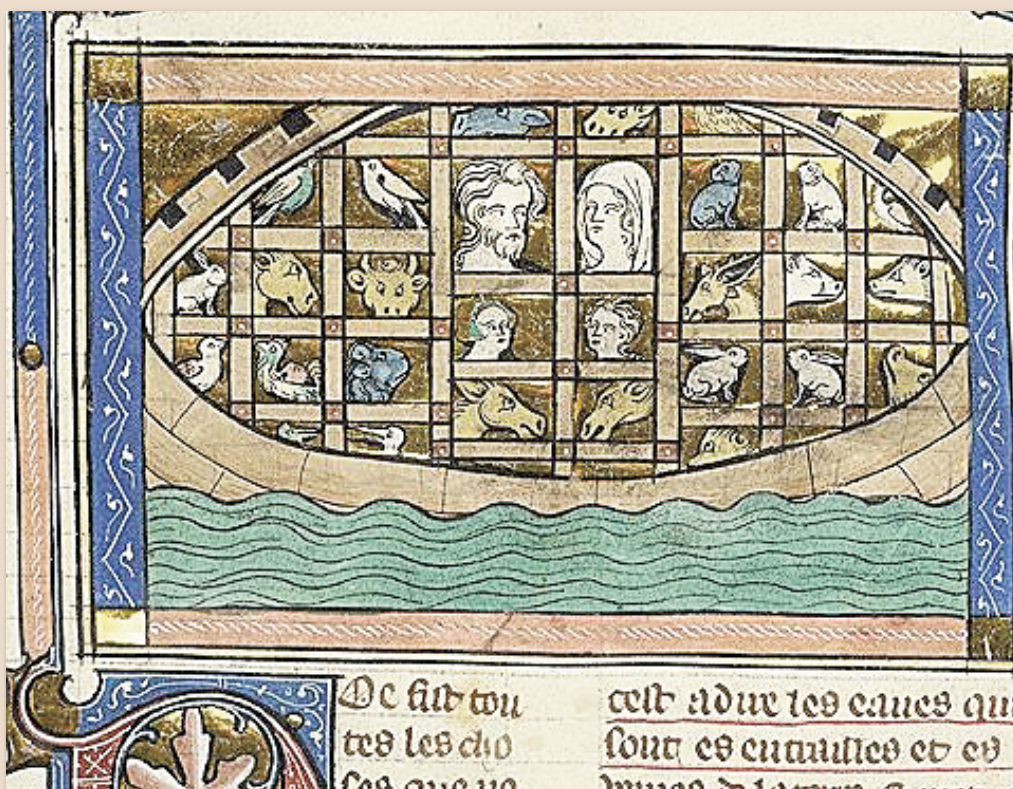 Oe fist tou
tes les cho
ses que ne
cest adire les eaues qui
sont es entrailles et es